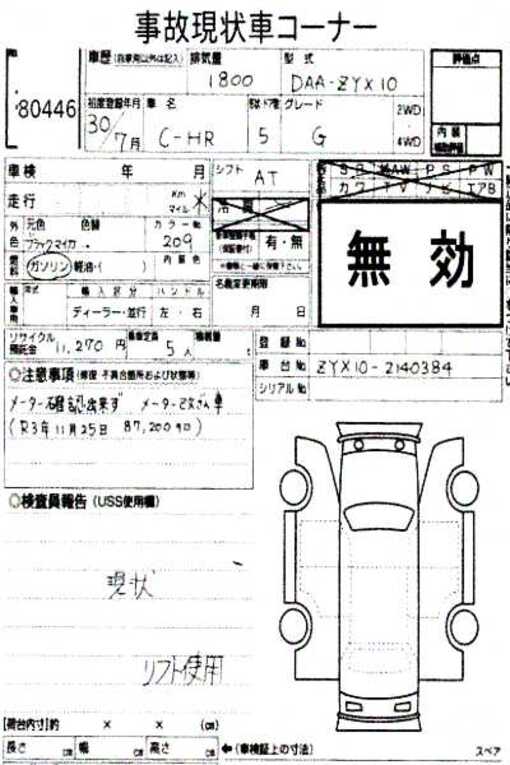 事故現状車コーナー
車歴(自家用以外は記入) 排気量 型式 評価点
1800 DAA-ZYX10
80446
初度登録年月 車名 ドア形 グレード 2WD
30/7月 C-HR 5 G 4WD
内装
車検 年 月 シフト AT
S R AAW P S P W
カワ T V ナビ エアB
走行 Km マイル ✳
冷房
外色 元色 色替 カラーNo
ブラックマイカ 209
有・無
無効
燃料 ガソリン・軽油・( ) 内装色
名義変更期限
輸入車用 年式 輸入区分 ハンドル
ディーラー・並行 左・右 月 日
リサイクル預託金 11,270円 乗車定員 5人 積載量 t
登録No
車台No ZYX10-2140384
シリアルNo
◎注意事項(修復・不具合箇所および状態等)
メーター確認出来ず メーター改ざん車
(R3年11月25日 87,200キロ)
◎検査員報告(USS使用欄)
現状
リフト使用
[荷台内寸]約 × × (cm)
長さ cm 幅 cm 高さ cm ←(車検証上の寸法)
スペア